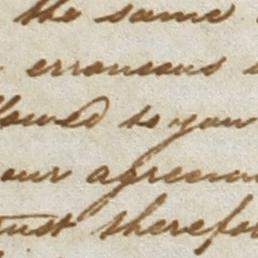 the same
erroneous
lowed to you
our agreem
ust therefo